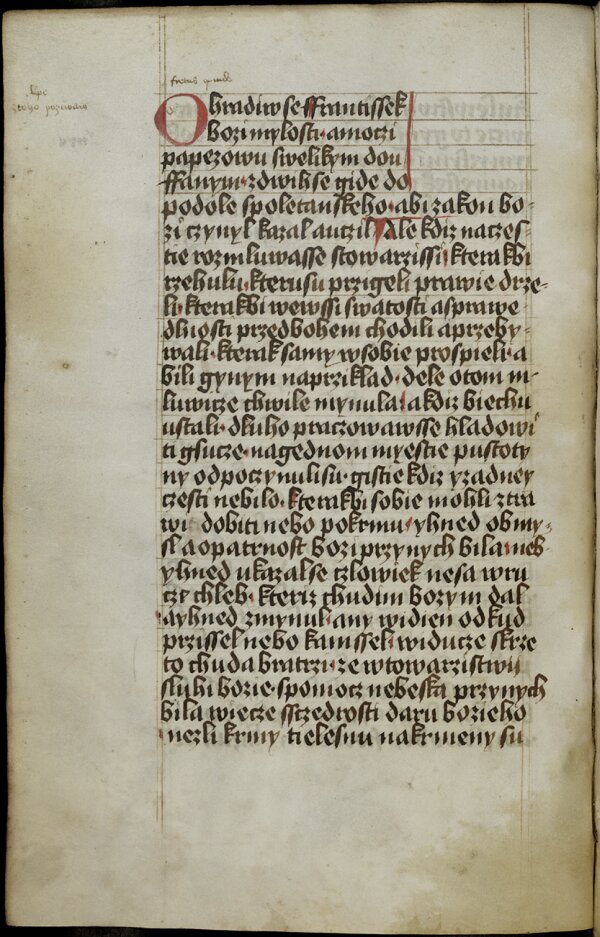 Ohradiw se Ffrantissek
bozi mylosti · a moczi
papezowu s welikym dou
ffanym · zdwih se gide do
podole spoletanskeho · abi zakon bo-
zi czynyl kazal a uczil Ale kdiz na czes-
tie rozmluwasse s towarzissi · kterakbi
rzehulu · kterusu przigeli prawie drze-
li · kterakbi we wssi swatosti a sprawe
dlnosti przed bohem chodili a przeby-
wali · kterak samy w sobie prospieli · a
bili gynym na prziklad · dele o tom m-
luwicze chwile mynula a kdiz biechu
ustali · dluho praczowawsse hladowi
ti gsucze · na gednom myestie pustoty
ny odpoczynuli su · gistie kdiz y zadney
czesti nebilo · kterakbi sobie mohli ztra
wi dobiti nebo pokrmu · yhned obmy-
sla opatrnost bozi przy nych bila · neb-
yhned ukazal se czlowiek nesa w ru
czy chleb · kteriz chudim bozym dal
a yhned zmynul · any widien odkud
przissel nebo kam ssel · widucze skrze
to chuda bratrzi · ze w towarzistwij
sluhi bozie · s pomocz nebeska przy nych
bila wiecze sczedrosti daru bozieho
nezli krmy tielesnu nakrmeny su